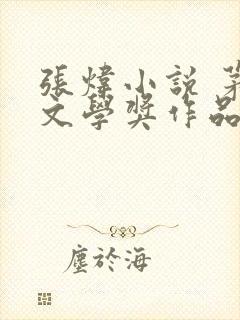 張煒小說 茅
文學獎作品
塵於海